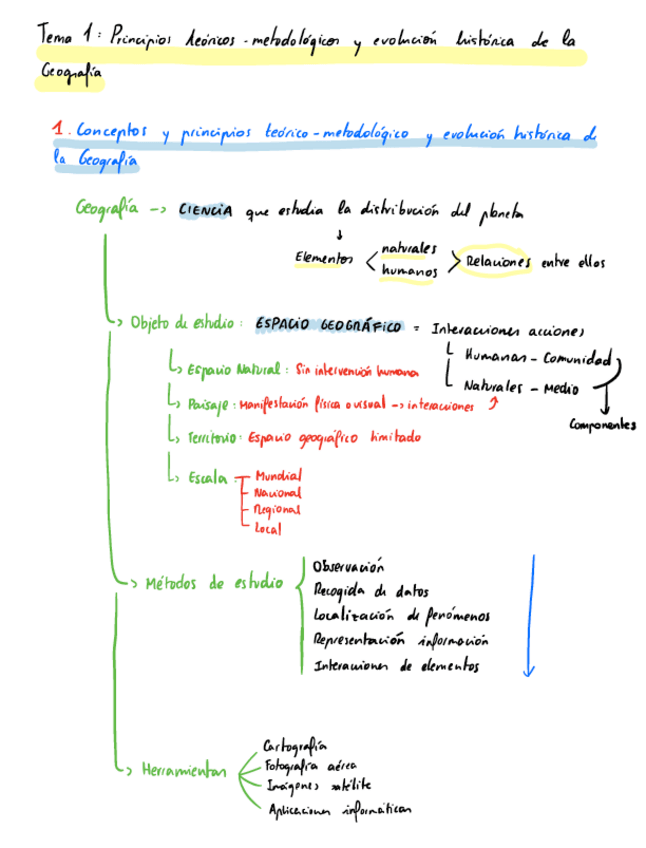 Tema 1: Principios teóricos-metodológicos y evolución histórica de la
Geografía
1. Conceptos y principios teórico-metodológico y evolución histórica de
la Geografía
Geografía -> CIENCIA que estudia la distribución del planeta
Elementos < naturales humanos > Relaciones entre ellos
Objeto de estudio: ESPACIO GEOGRÁFICO = Interacciones acciones
Humanas - Comunidad
Espacio Natural: Sin intervención humana
Naturales - Medio
Paisaje: Manifestación física o visual -> interacciones
Componentes
Territorio: Espacio geográfico limitado
Escala: Mundial
Nacional
Regional
Local
Métodos de estudio
Observación
Recogida de datos
Localización de fenómenos
Representación información
Interacciones de elementos
Herramientas
Cartografía
Fotografía aérea
Imágenes satélite
Aplicaciones informáticas